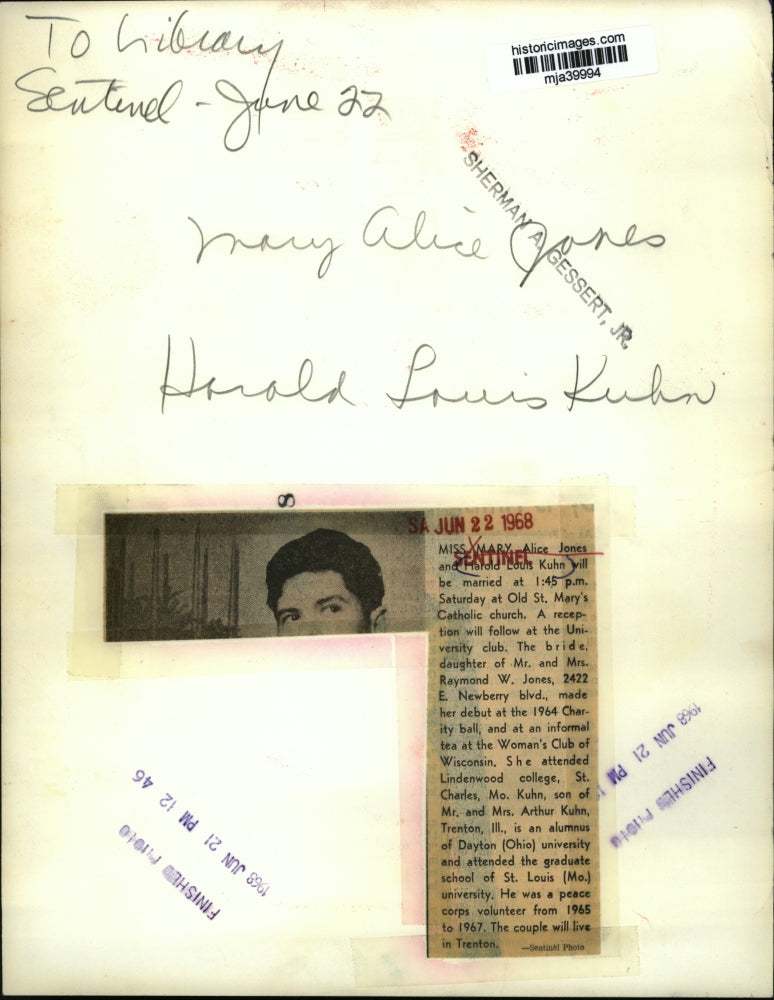 To Library
Sentinel - June 22
historicimages.com
mja39994
SHERMAN A. GESSERT, JR.
Mary Alice Jones
Harold Louis Kuhn
8
SA JUN 22 1968
SENTINEL
MISS MARY Alice Jones
and Harold Louis Kuhn will
be married at 1:45 p.m.
Saturday at Old St. Mary's
Catholic church. A recep-
tion will follow at the Uni-
versity club. The bride,
daughter of Mr. and Mrs.
Raymond W. Jones, 2422
E. Newberry blvd., made
her debut at the 1964 Char-
ity ball, and at an informal
tea at the Woman's Club of
Wisconsin. She attended
Lindenwood college, St.
Charles, Mo. Kuhn, son of
Mr. and Mrs. Arthur Kuhn,
Trenton, Ill., is an alumnus
of Dayton (Ohio) university
and attended the graduate
school of St. Louis (Mo.)
university. He was a peace
corps volunteer from 1965
to 1967. The couple will live
in Trenton.
—Sentinel Photo
1968 JUN 21 PM 12 46
FINISHED
1968 JUN 21 PM
FINISHED